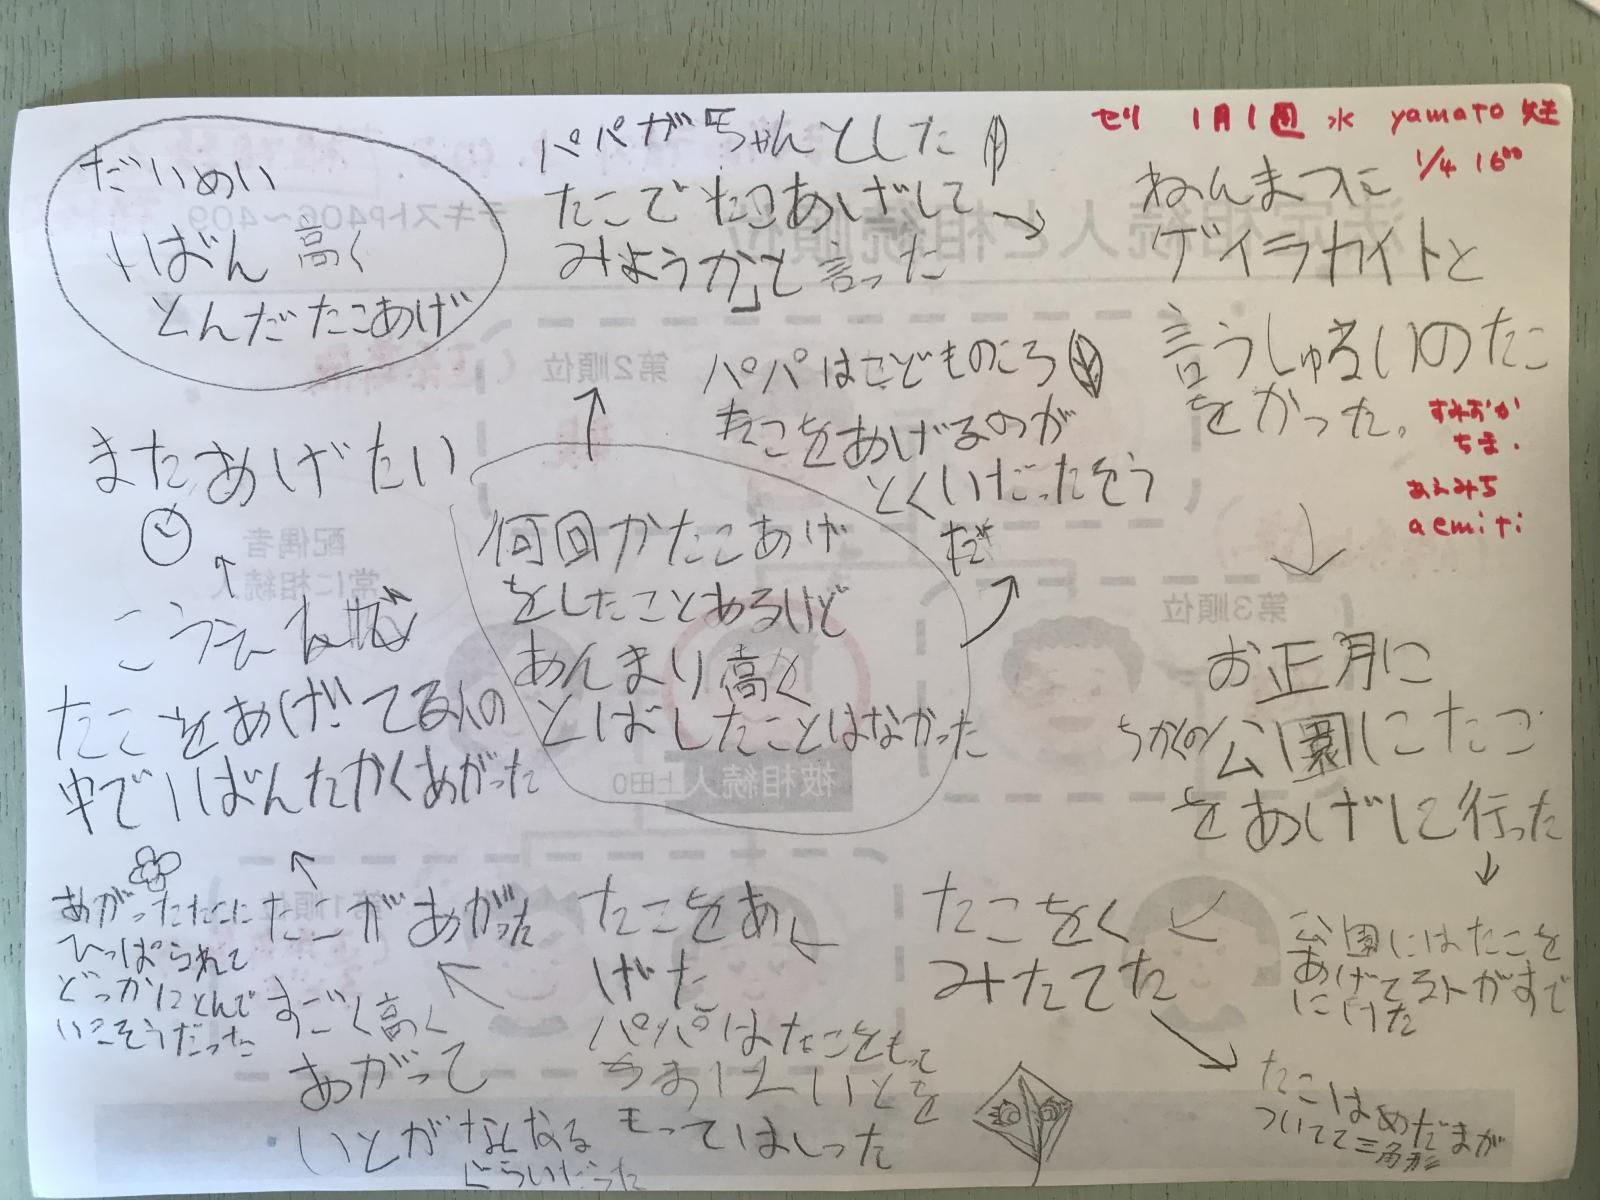 だいめい
いばん高く
とんだたこあげ
パパが「ちゃんとした
たこでたこあげして
みようか」と言った
セリ 1月1回 水 yamato
1/4 16:00
ねんまつに
ゲイラカイトと
言うしゅるいのたこ
をかった。
すみおか
ちま.
あえみち
aemiti
お正月に
ちかくの公園にたこ
をあげに行った
公園にはたこを
あげてる人がすで
にいた
たこをく
みたてた
たこはめだまが
ついてて三角形
たこをあ
げた
パパはたこをもって
いとを
もってはしった
たこがあがった
すごく高く
あがって
いとがなくなる
ぐらいだった
あがったたこに
ひっぱられて
どっかにとんで
いこそうだった
こうえんで
たこをあげてる人の
中でいばんたかくあがった
またあげたい
何回かたこあげ
をしたことあるけど
あんまり高く
とばしたことはなかった
パパはこどものころ
たこをあげるのが
とくいだったそう
だ
法定相続人と相続順位
テキストP406～409
第2順位
配偶者
常に相続人
第3順位
被相続人
第1順位